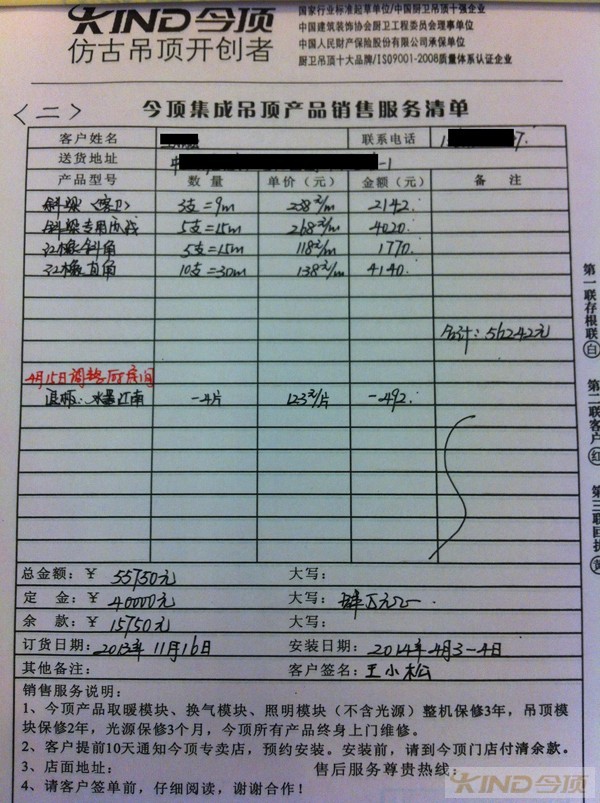 KIND今顶
仿古吊顶开创者
国家行业标准起草单位/中国厨卫吊顶十强企业
中国建筑装饰协会厨卫工程委员会理事单位
中国人民财产保险股份有限公司承保单位
厨卫吊顶十大品牌/ISO9001-2008质量体系认证企业
<二>
今顶集成吊顶产品销售服务清单
客户姓名 联系电话
送货地址 -1
产品型号 数量 单价（元） 金额（元） 备注
斜梁 3支=9m 238元/m 2142.
斜梁专用 5支=15m 268元/m 4020.
斜角 5支=15m 118元/m 1770.
直角 10支=30m 138元/m 4140.
合计：56242元
4月15日调整
退瓶：水墨江南 -4片 123元/片 -492.
总金额：￥ 55750元 大写：
定金：￥ 40000元 大写：肆万元
余款：￥ 15750元 大写：
订货日期：2013年11月16日 安装日期：2014年4月3-4日
其他备注： 客户签名：王小松
销售服务说明：
1、今顶产品取暖模块、换气模块、照明模块（不含光源）整机保修3年，吊顶模
块保修2年，光源保修3个月，今顶所有产品终身上门维修。
2、客户提前10天通知今顶专卖店，预约安装。安装前，请到今顶门店付清余款。
3、店面地址： 售后服务尊贵热线：
4、请客户签单前，仔细阅读，谢谢合作！
第一联存根联（白）
第二联客户（红）
第三联回执（黄）
KIND今顶